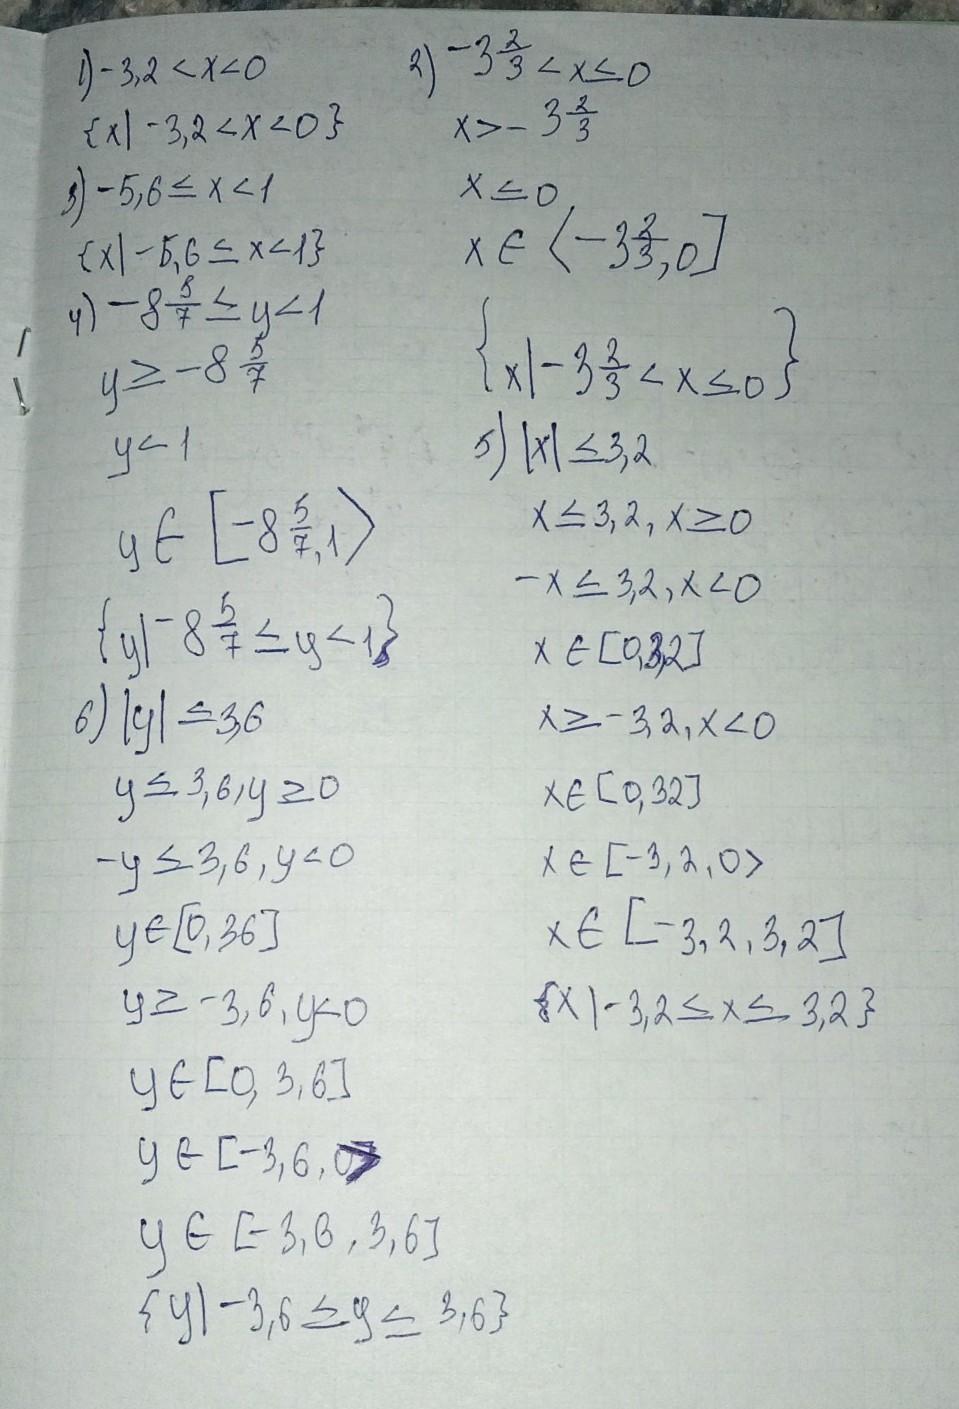 1) -3,2 < x < 0
{x| -3,2 < x < 0}
3) -5,6 ≤ x < 1
{x| -5,6 ≤ x < 1}
4) -8 5/7 ≤ y < 1
y ≥ -8 5/7
y < 1
y ∈ [-8 5/7, 1⟩
{y| -8 5/7 ≤ y < 1}
6) |y| ≤ 3,6
y ≤ 3,6, y ≥ 0
-y ≤ 3,6, y < 0
y ∈ [0, 36]
y ≥ -3,6, y < 0
y ∈ [0, 3,6]
y ∈ [-3,6, 0>
y ∈ [-3,6, 3,6]
{y| -3,6 ≤ y ≤ 3,6}
2) -3 2/3 < x ≤ 0
x > -3 2/3
x ≤ 0
x ∈ ⟨-3 2/3, 0]
{x| -3 2/3 < x ≤ 0}
5) |x| ≤ 3,2
x ≤ 3,2, x ≥ 0
-x ≤ 3,2, x < 0
x ∈ [0,3,2]
x ≥ -3,2, x < 0
x ∈ [0,32]
x ∈ [-3,2,0>
x ∈ [-3,2,3,2]
{x| -3,2 ≤ x ≤ 3,2}